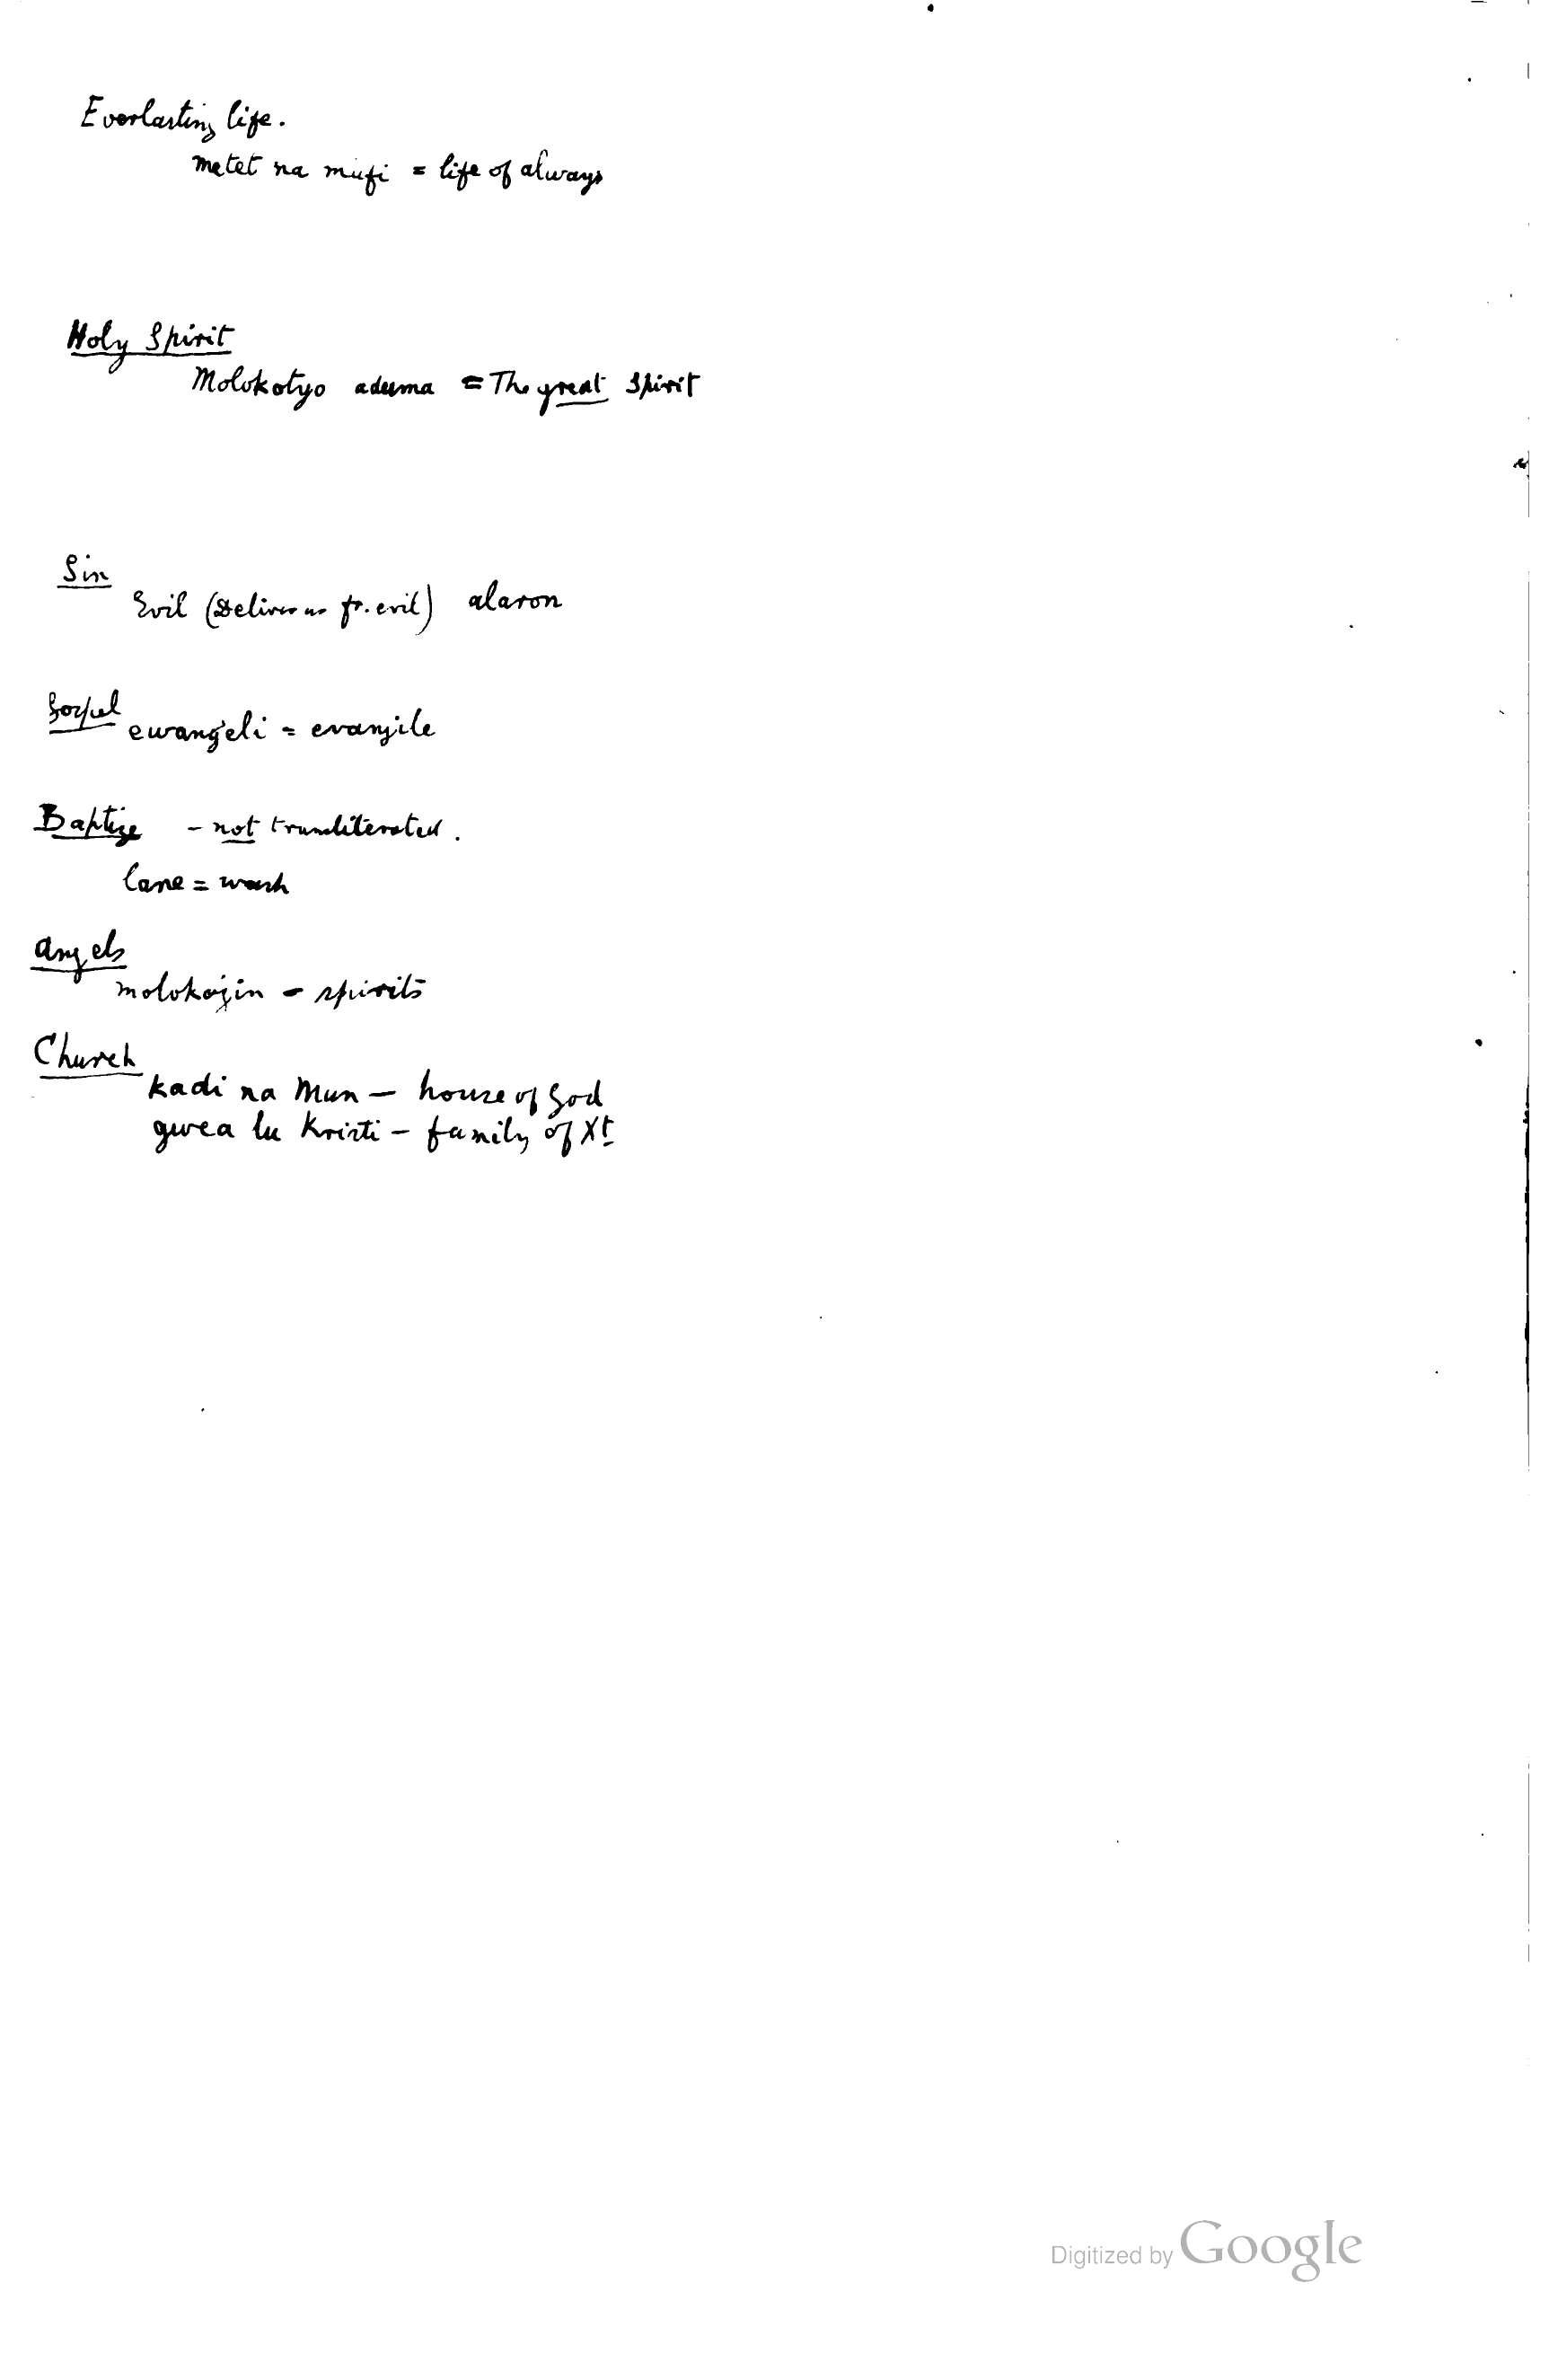 Everlasting life.
metet na mufi = life of always
Holy Spirit
Molokotyo aduma = The great Spirit
Sin
Evil (Deliver us fr. evil) alaron
Gospel
ewangeli = evanjile
Baptize - not transliterated.
lane = wash
Angels
molokojin - spirits
Church
kadi na Mun - house of God
gwea lu Kristi - family of Xt
Digitized by Google